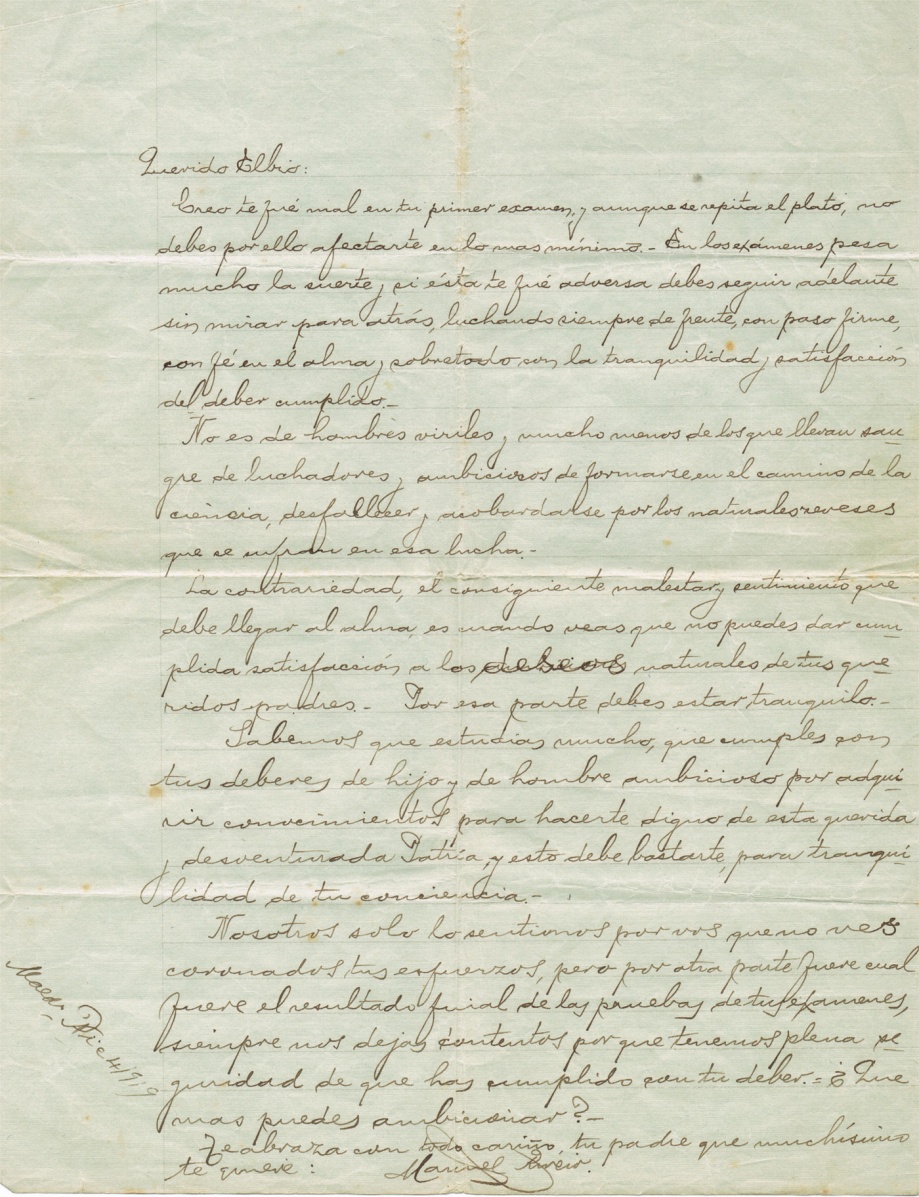 Querido Elbio:
Creo te fué mal en tu primer examen, y aunque se repita el plato, no
debes por ello afectarte en lo mas mínimo.- En los exámenes pesa
mucho la suerte y si ésta te fué adversa debes seguir adelante
sin mirar para atrás, luchando siempre de frente, con paso firme,
con fé en el alma y sobretodo con la tranquilidad y satisfacción
del deber cumplido.-
No es de hombres viriles y mucho menos de los que llevan san-
gre de luchadores y ambiciosos de formarse en el camino de la
ciencia, desfallecer y acobardarse por los naturales reveses
que se sufran en esa lucha.-
La contrariedad, el consiguiente malestar y sentimiento que
debe llegar al alma, es cuando veas que no puedes dar cum-
plida satisfacción a los deseos naturales de tus que-
ridos padres.- Por esa parte debes estar tranquilo.-
Sabemos que estudias mucho, que cumples con
tus deberes de hijo y de hombre ambicioso por adqui-
rir conocimientos para hacerte digno de esta querida
y desventurada Patria, y esto debe bastarte, para tranqui-
lidad de tu conciencia.-
Nosotros solo lo sentimos por vos que no ves
coronados tus esfuerzos, pero por otra parte fuere cual
fuere el resultado final de las pruebas de tus examenes,
siempre nos dejas contentos por que tenemos plena se-
guridad de que has cumplido con tu deber.= ¿Que
mas puedes ambicionar?-
Te abraza con todo cariño, tu padre que muchísimo
te quiere: Manuel
Dic 4/919